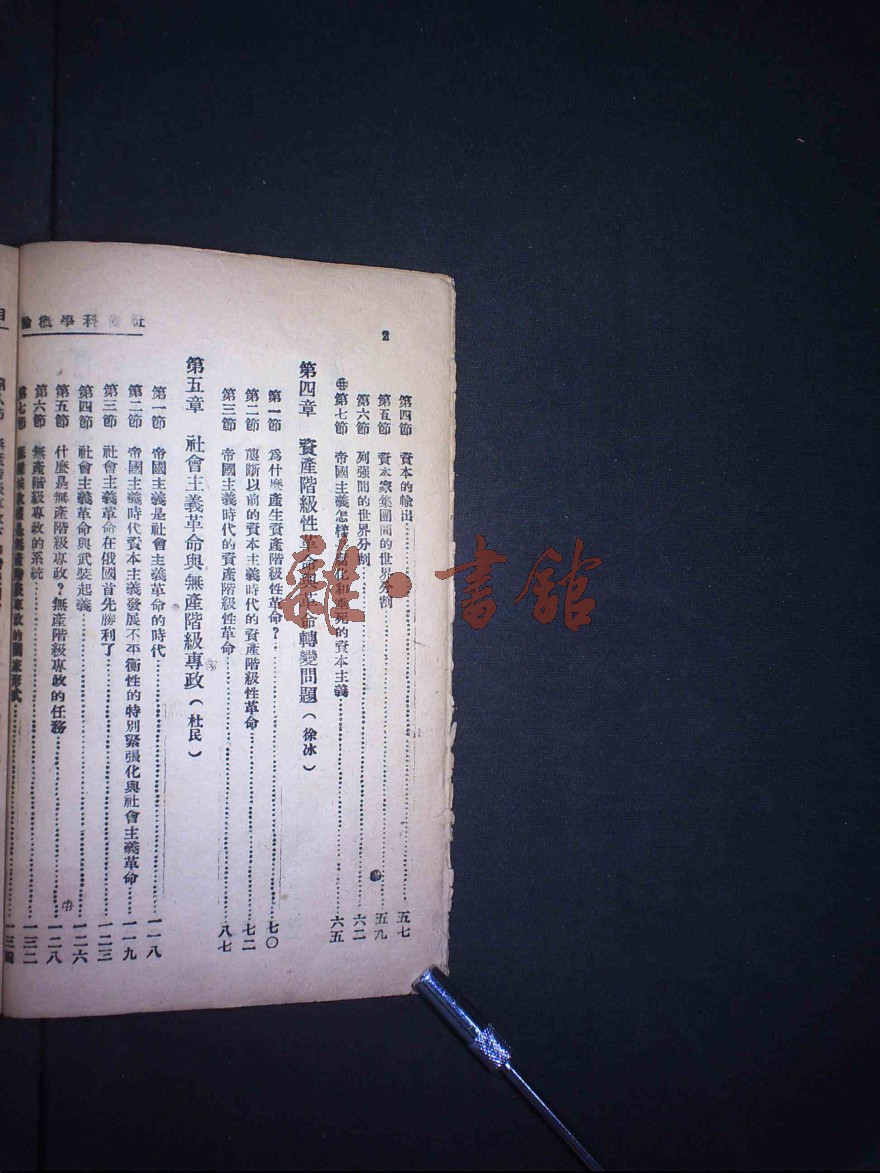 2
社會科學概論
第四節 資本的輸出……五七
第五節 資本家集團間的世界分割……五九
第六節 列強間的世界分割……六二
第七節 帝國主義怎樣 腐化和垂死的資本主義……六五
第四章 資產階級性革命與革命轉變問題（徐冰）
第一節 爲什麽產生資產階級性革命？……七〇
第二節 壟斷以前的資本主義時代的資產階級性革命……七二
第三節 帝國主義時代的資產階級性革命……八七
第五章 社會主義革命與無產階級專政（杜民）
第一節 帝國主義是社會主義革命的時代……一一八
第二節 帝國主義時代資本主義發展不平衡性的特別緊張化與社會主義革命……一一九
第三節 社會主義革命在俄國首先勝利了……一二三
第四節 社會主義革命與武裝起義……一二六
第五節 什麽是無產階級專政？無產階級專政的任務……一二八
第六節 無產階級專政的系統……一三二
第七節 是無產階級專政的國家形式……一三四
目
第八節 無產階級專政
雜·書館